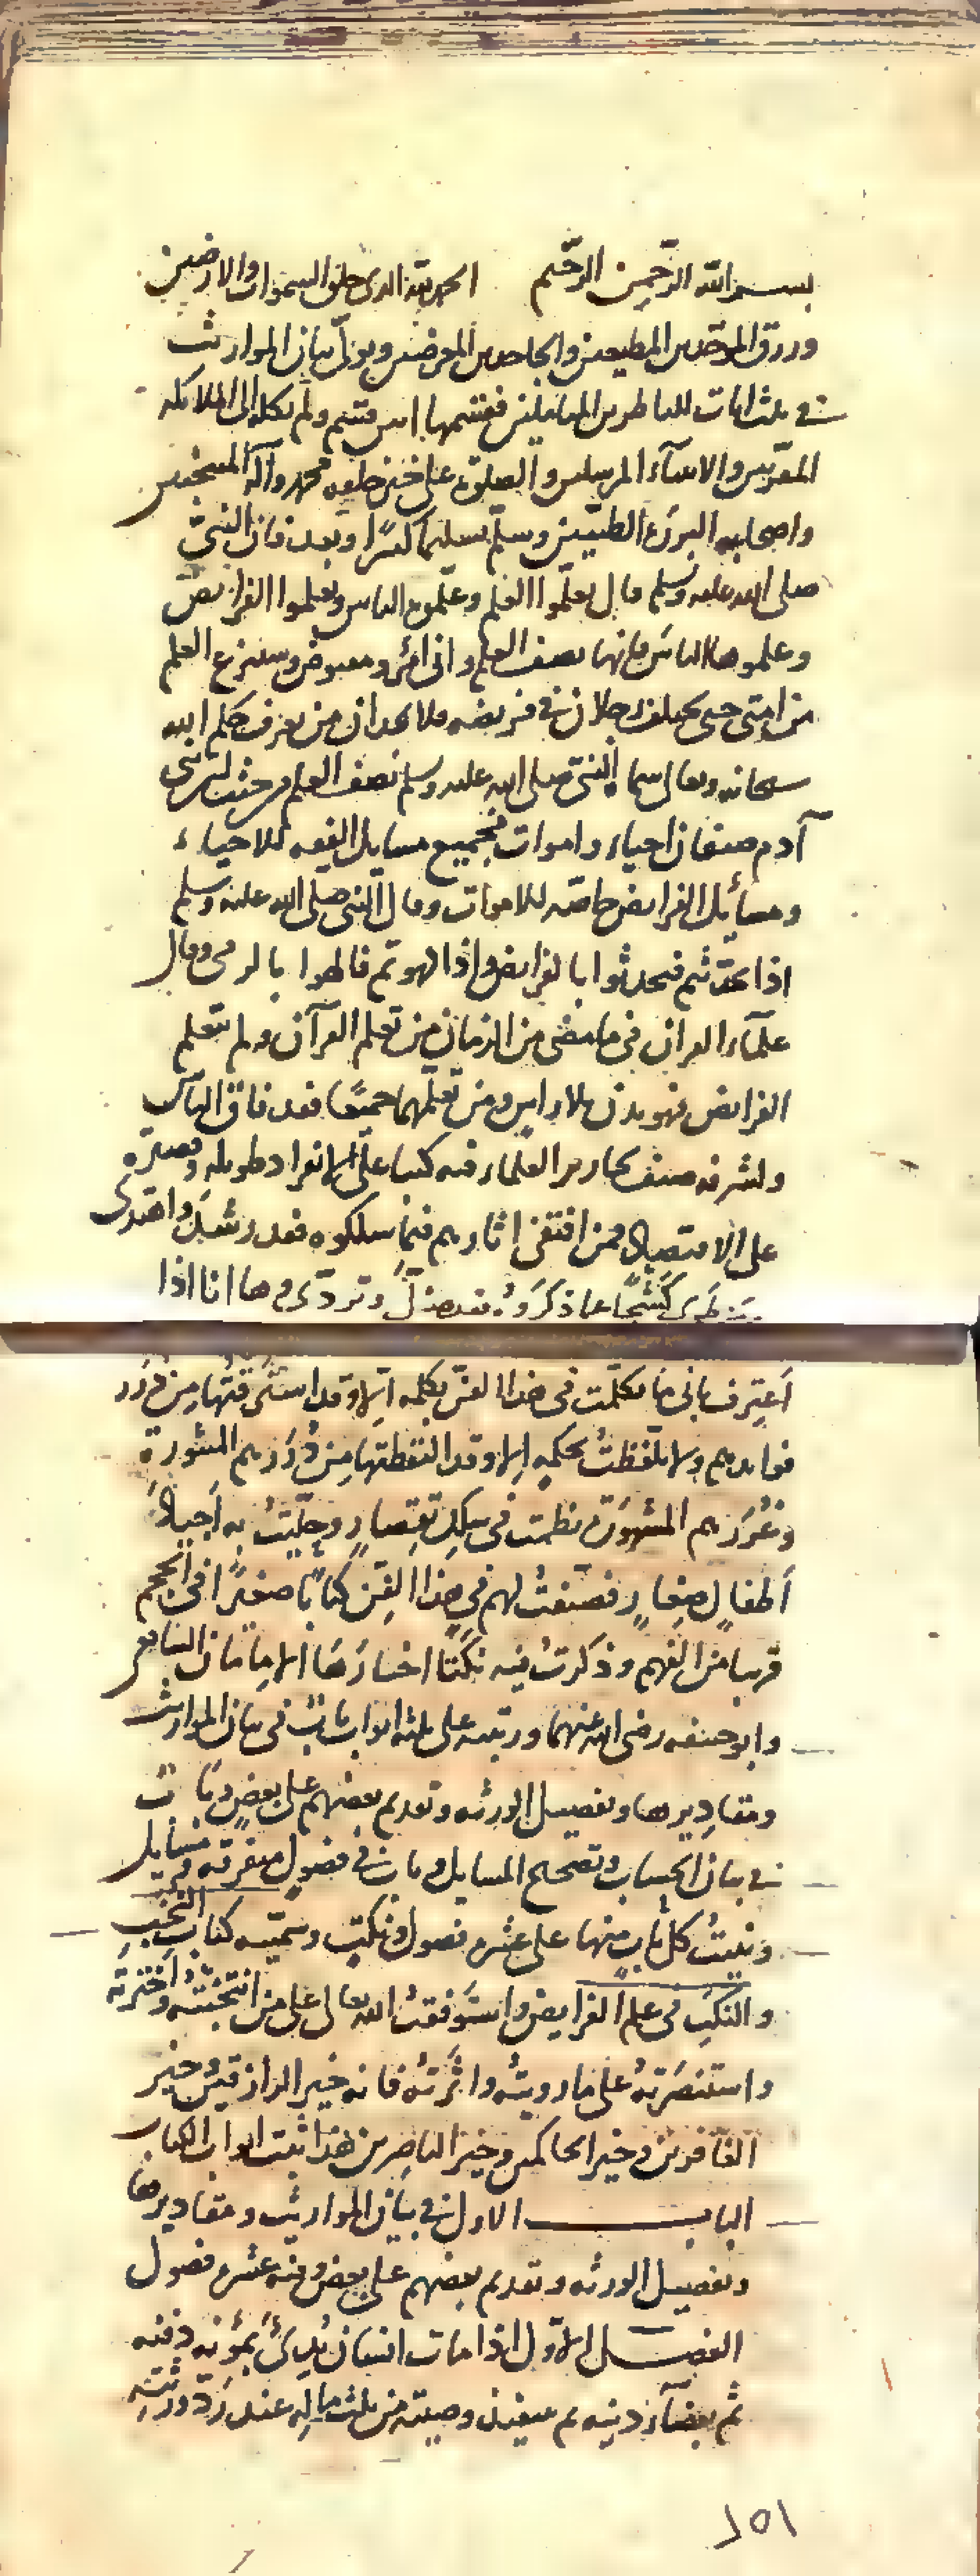 بسم الله الرحمن الرحيم الحمد لله الذي خلق السموات والارضين
ورزق الموحدين المطيعين والجاحدين المعرضين وتولى بيان المواريث
في ثلث ايات للناظرين المتاملين فقسمها ابين قسم ولم يكله الى الملائكة
المقربين والانبياء المرسلين والصلوة على خير خلقه محمد وآله المنتجبين
واصحابه البررة الطيبين وسلم تسليما كثيرا وبعد فان النبي
صلى الله عليه وسلم قال تعلموا العلم وعلموه الناس وتعلموا الفرائض
وعلموها الناس فانها نصف العلم واني امرء مقبوض وسينزع العلم
من امتي حتى يختلف رجلان في فريضة فلا يجدان من يعرف حكم الله
سبحانه وتعالى سماه النبي صلى الله عليه وسلم نصف العلم من حيث ان بني
آدم صنفان احياء واموات فجميع مسايل الفقه للاحياء
ومسائل الفرايض خاصة للاموات وقال النبي صلى الله عليه وسلم
اذا تحدثتم فتحدثوا بالفرايض واذا لهوتم فالهوا بالرمي وقال
علماء القرآن في ما مضى من الزمان من تعلم القرآن ولم يتعلم
الفرايض فهو بدن بلا راس ومن تعلمهما جميعا فقد فاق الناس
ولشرفه صنف نحارير العلماء فيه كتبا على الانفراد طويلة وقصيرة
على الاقتصار فمن اقتفى اثارهم فيما سلكوه فقد رشد واهتدى
ومن طوى كشحا عما ذكروه فقد ضل وتردى وها انا اذا
اعترف باني ما تكلمت في هذا الفن بكلمة الا وقد استرقتها من درر
فوايدهم ولا تلفظت بحكمة الا وقد التقطتها من دررهم المنثورة
وغررهم المشهورة نظمت في سلك تقصار وحليت به اجياد
اطفال صغار فصنفت لهم في هذا الفن كتابا صغيرا في الحجم
قريبا من الفهم وذكرت فيه نكتا اختارها الامامان الشافعي
وابو حنيفة رضي الله عنهما ورتبته على ثلثة ابواب باب في بيان المواريث
ومقاديرها وتفصيل الورثة وتقديم بعضهم على بعض وباب
في بيان الحساب وتصحيح المسايل وباب في فصول متفرقة ومسايل
وبنيت كل باب منها على عشرة فصول ونكت وسميته كتاب النخب
والنكت في علم الفرايض واستوفقت الله تعالى على من انتخبته واخترته
واستنصرته على ما رويته واثرته فانه خير الرازقين وخير
الغافرين وخير الحاكمين وخير الناصرين هذا ثبت ابواب الكتاب
الباب الاول في بيان المواريث ومقاديرها
وتفصيل الورثة وتقديم بعضهم على بعض وفيه عشرة فصول
الفصل الاول اذا مات انسان بدئ بمؤنة دفنه
ثم بقضاء دينه ثم تنفيذ وصيته من ثلث ماله عند رد ورثته